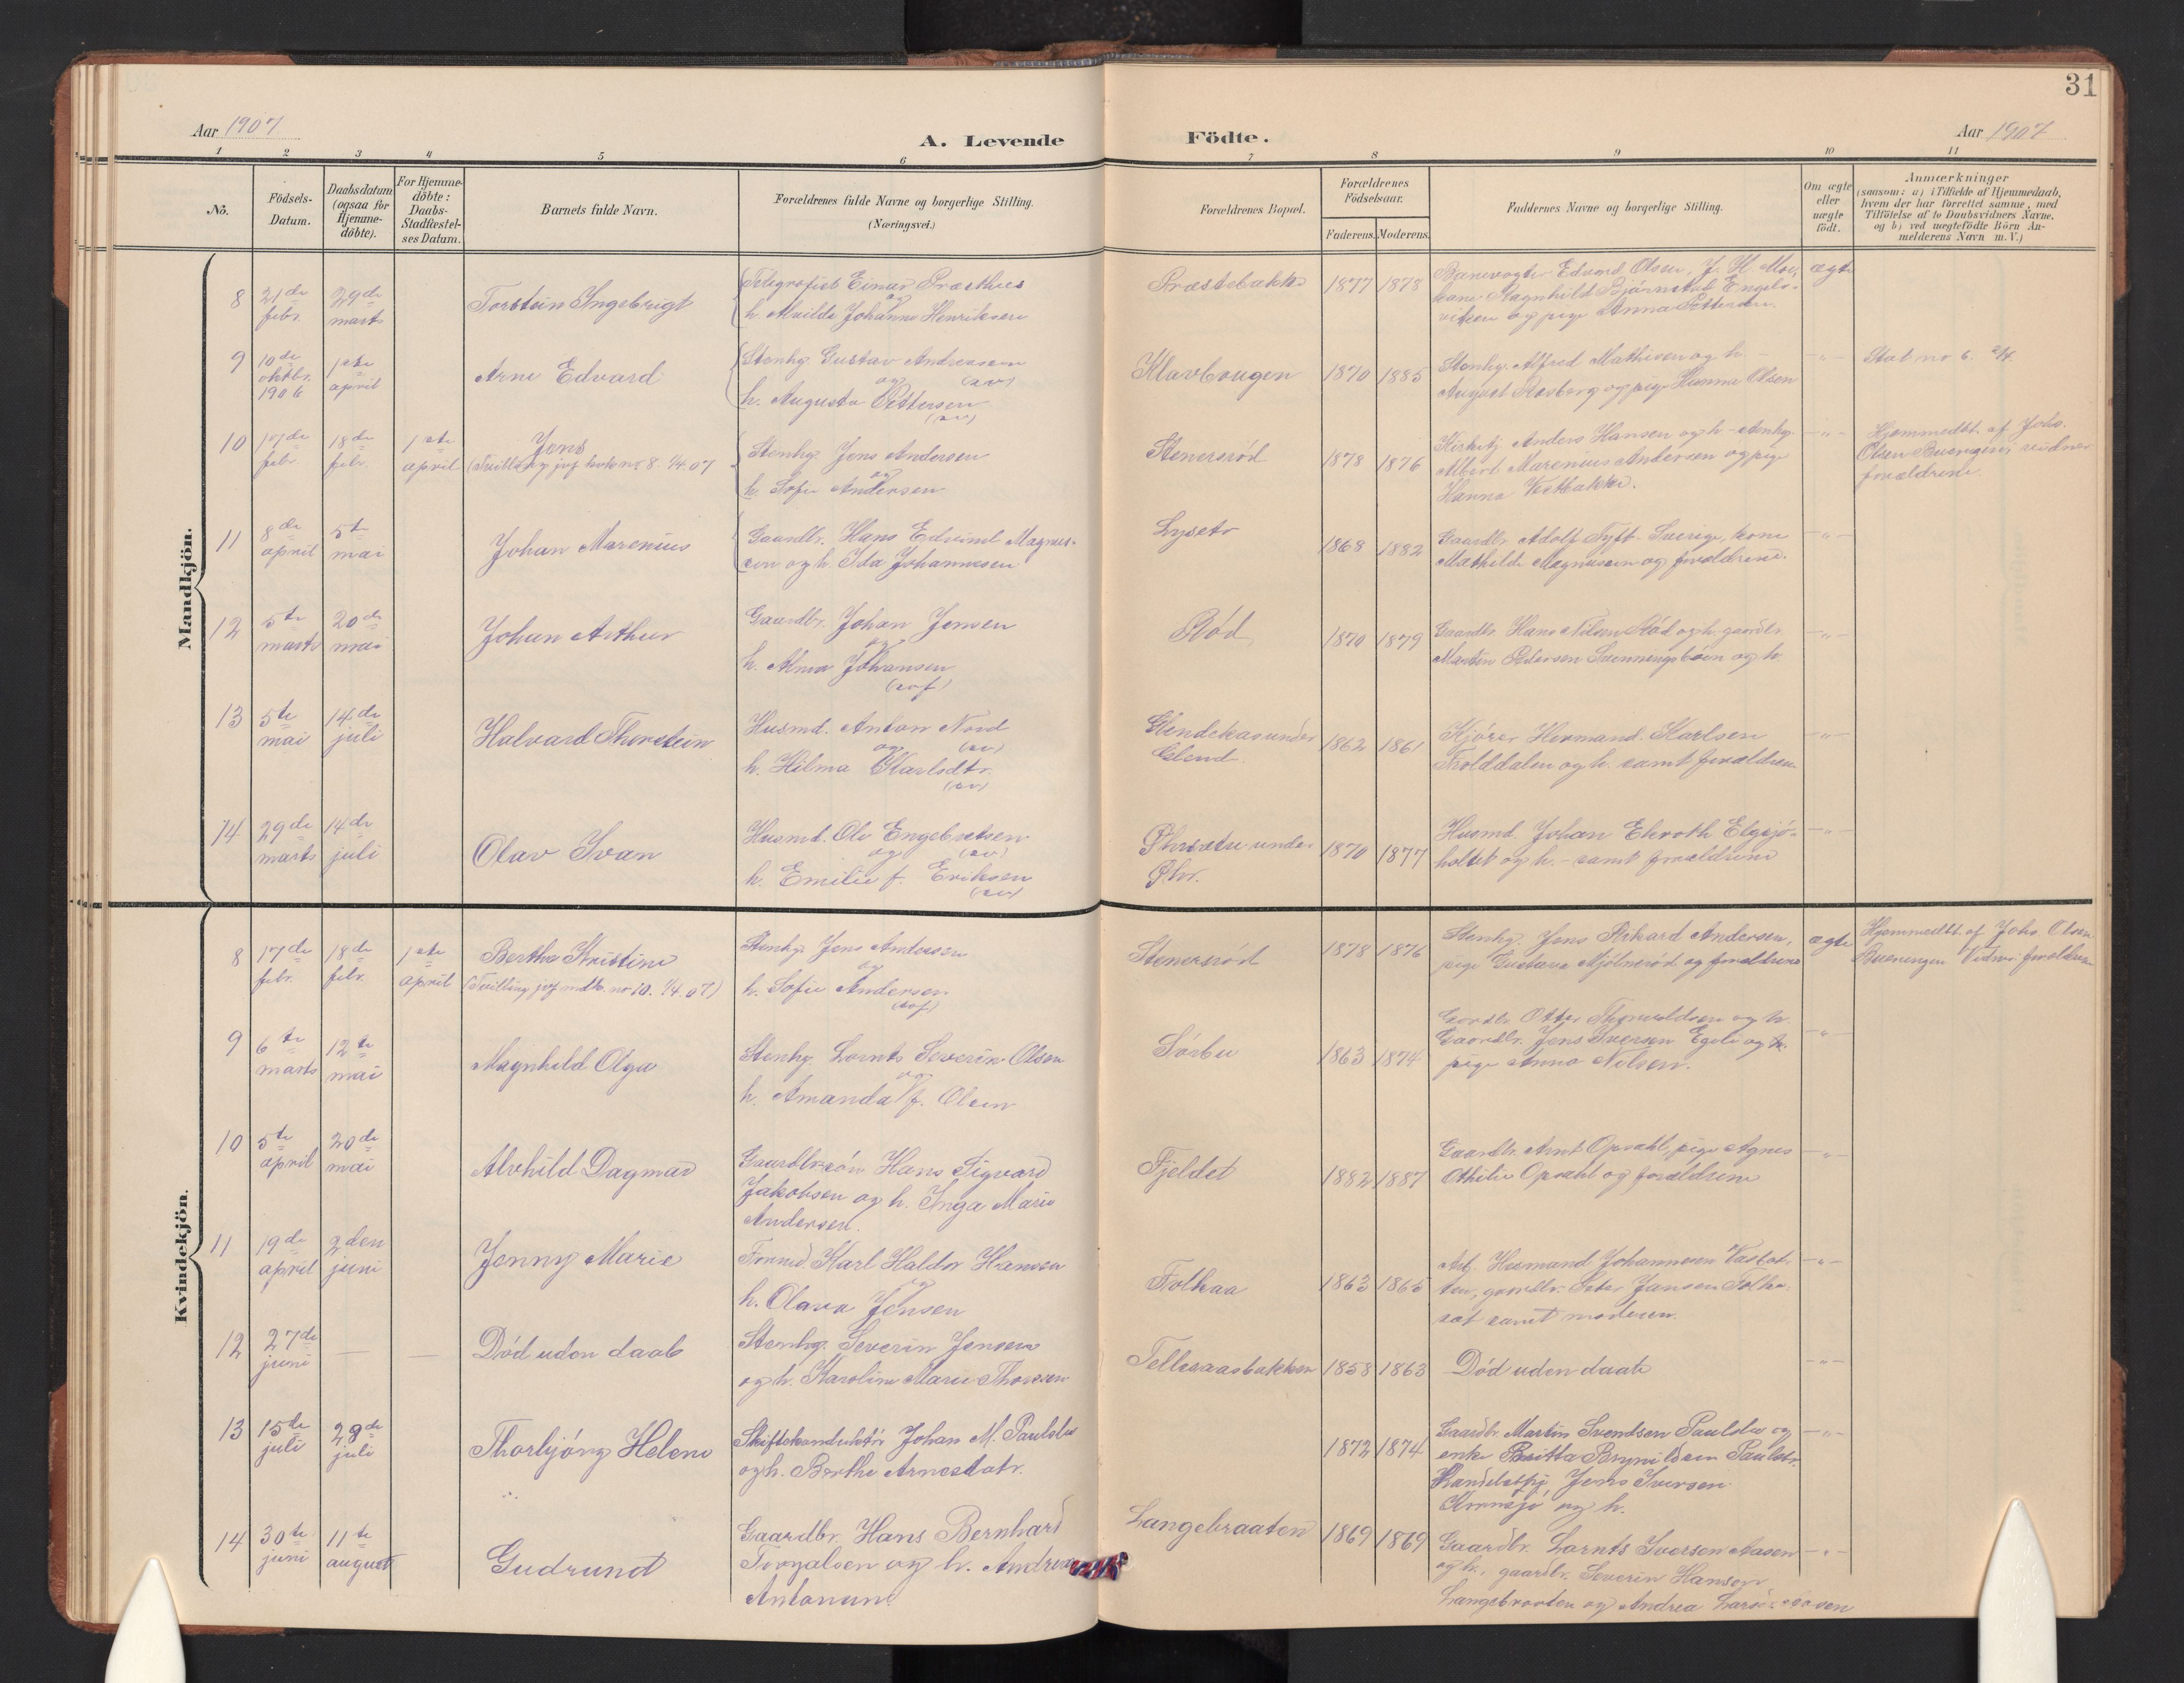 31
Aar 1907
A. Levende Födte.
Aar 1907
1 2 3 4 5 6 7 8 9 10 11
No.
Födsels-Datum.
Daabsdatum (ogsaa for Hjemme-döbte).
For Hjemme-döbte: Daabs-Stadfæstel-ses Datum.
Barnets fulde Navn.
Forældrenes fulde Navne og borgerlige Stilling.
(Næringsvei.)
Forældrenes Bopæl.
Forældrenes Födselsaar.
Faderens. Moderens.
Faddernes Navne og borgerlige Stilling.
Om ægte eller uægte födt.
Anmærkninger
(saasom: a) i Tilfælde af Hjemmedaab,
hvem der har forrettet samme, med
Tilföielse af to Daabsvidners Navne.
og b) ved uægtefödte Börn An-
melderens Navn m. V.)
Mandkjön.
8 21de febr. 29de marts Torstein Ingebrigt
Telegrafist Einar Præsthus
og
h. Alvilde Johanne Henriksen
Præstebakke 1877 1878
Banevogter Edvard Olsen, J. H. Moe,
kone Ragnhild Bjørnstad Engels-
viken og pige Anna Pettersen.
ægte
9 10de oktbr. 1906 1ste april Arne Edvard
Stenhg. Gustav Andreassen
og (sv)
h. Augusta Pettersen
(sv)
Klavbougen 1870 1885
Stenhg. Alfred Mathisen og h. -
August Rosberg og pige Hanna Olsen
-„- Stat no 6. 2/4.
10 17de febr. 18de febr. 1ste april Jens
(Tvilling jvf kvk no 8. 1/4.07
Stenhg. Jens Andersen
og
h. Sofie Andersen
Stenersröd 1878 1876
Kirketj. Anders Hansen og h - stenhg.
Albert Marenius Andersen og pige
Hanna Vestbakke.
-„- Hjemmedbt. af Johs.
Olsen Bueringen, vidner
forældrene.
11 8de april 5te mai Johan Marenius
Gaardbr. Hans Edvind Magnus-
sen og h. Ida Johannesen
Lyseto 1868 1882
Gaardbr Adolf Tyft Sverige, kone
Mathilde Magnussen og forældrene.
-„-
12 5te marts 20de mai Johan Arthur
Gaardbr. Johan Jensen
og
h. Alma Johansen
(sv f)
Röd 1870 1879
Gaardbr Hans Nilsen Röd og h. gaardbr.
Martin Pedersen Svenningsbøen og h.
-„-
13 5te mai 14de juli Halvard Thorstein
Husmd. Anton Nord
og (sv)
h. Hilma Karlsdtr.
(sv)
Elendekas under
Elend.
1862 1861
Kjörer Hermand Karlsen
Trolddalen og h. samt forældrene
-„-
14 29de marts 14de juli Olav Ivan
Husmd. Ole Engebretsen
og (sv)
h. Emilie f. Eriksen
(sv)
under
1870 1877
Husmd. Johan Ekroth Elgsjö-
holtet og h. - samt forældrene
-„-
Kvindekjön.
8 17de febr. 18de febr. 1ste april Bertha Kristine
(Tvilling jvf mdk. no 10. 1/4.07)
Stenhg. Jens Andersen
og
h. Sofie Andersen
(sv f)
Stenersröd 1878 1876
Stenhg. Jens Rikard Andersen,
pige Gustava Mjölneröd og forældrene
ægte Hjemmedbt. af Johs Olsen
Bueringen Vidner: forældrene
9 6te marts 12te mai Magnhild Olga
Stenhg. Lornts Severin Olsen
og
h. Amanda f. Olsen
Sörbu 1863 1874
Gardbr. Otter Thorvaldsen og h.
Gaardbr. Jens Iversen Egeli og h.
pige Anna Nilsen.
-„-
10 5te april 20de mai Alvhild Dagmar
Gaardbr.sön Hans Sigvard
Jakobsen og h. Inga Marie
Andersen.
Fjeldet 1882 1887
Gaardbr. Arnt Opsahl, pige Agnes
Othilie Opsahl og forældrene
-„-
11 19de april 2den juni Jenny Marie
Karl Haldor Hansen
og
h. Olava Jensen
Folkaa 1863 1865
Arb. Husmand Johannesen Vasbot-
ten, gaardbr. Peter Jansen Folke-
sat samt moderen.
-„-
12 27de juni — — Död uden daab
Stenhg. Severin Jensen
og h. Karoline Marie Thoresen
Tellesaasbakken 1858 1863 Död uden daab -„-
13 15de juli 28de juli Thorbjörg Helene
Skiftekonduktör Johan M. Paulsbu
og h. Berthe Arnesdatr.
1872 1874
Gaardbr. Martin Svendsen Paulsbu og
enke Britta Brynildsen Paulsbu.
Handelsbtj. Jens Iversen
Kornsjö og h.
-„-
14 30te juni 11te august Gudrund
Gaardbr. Hans Bernhard
Torgalsen og h. Andrea
Antonsen.
Langebraaten 1869 1869
Gaardbr. Lornts Iversen Aasen
og h., gaardbr. Severin Hansen
Langebraaten og Andrea
-„-